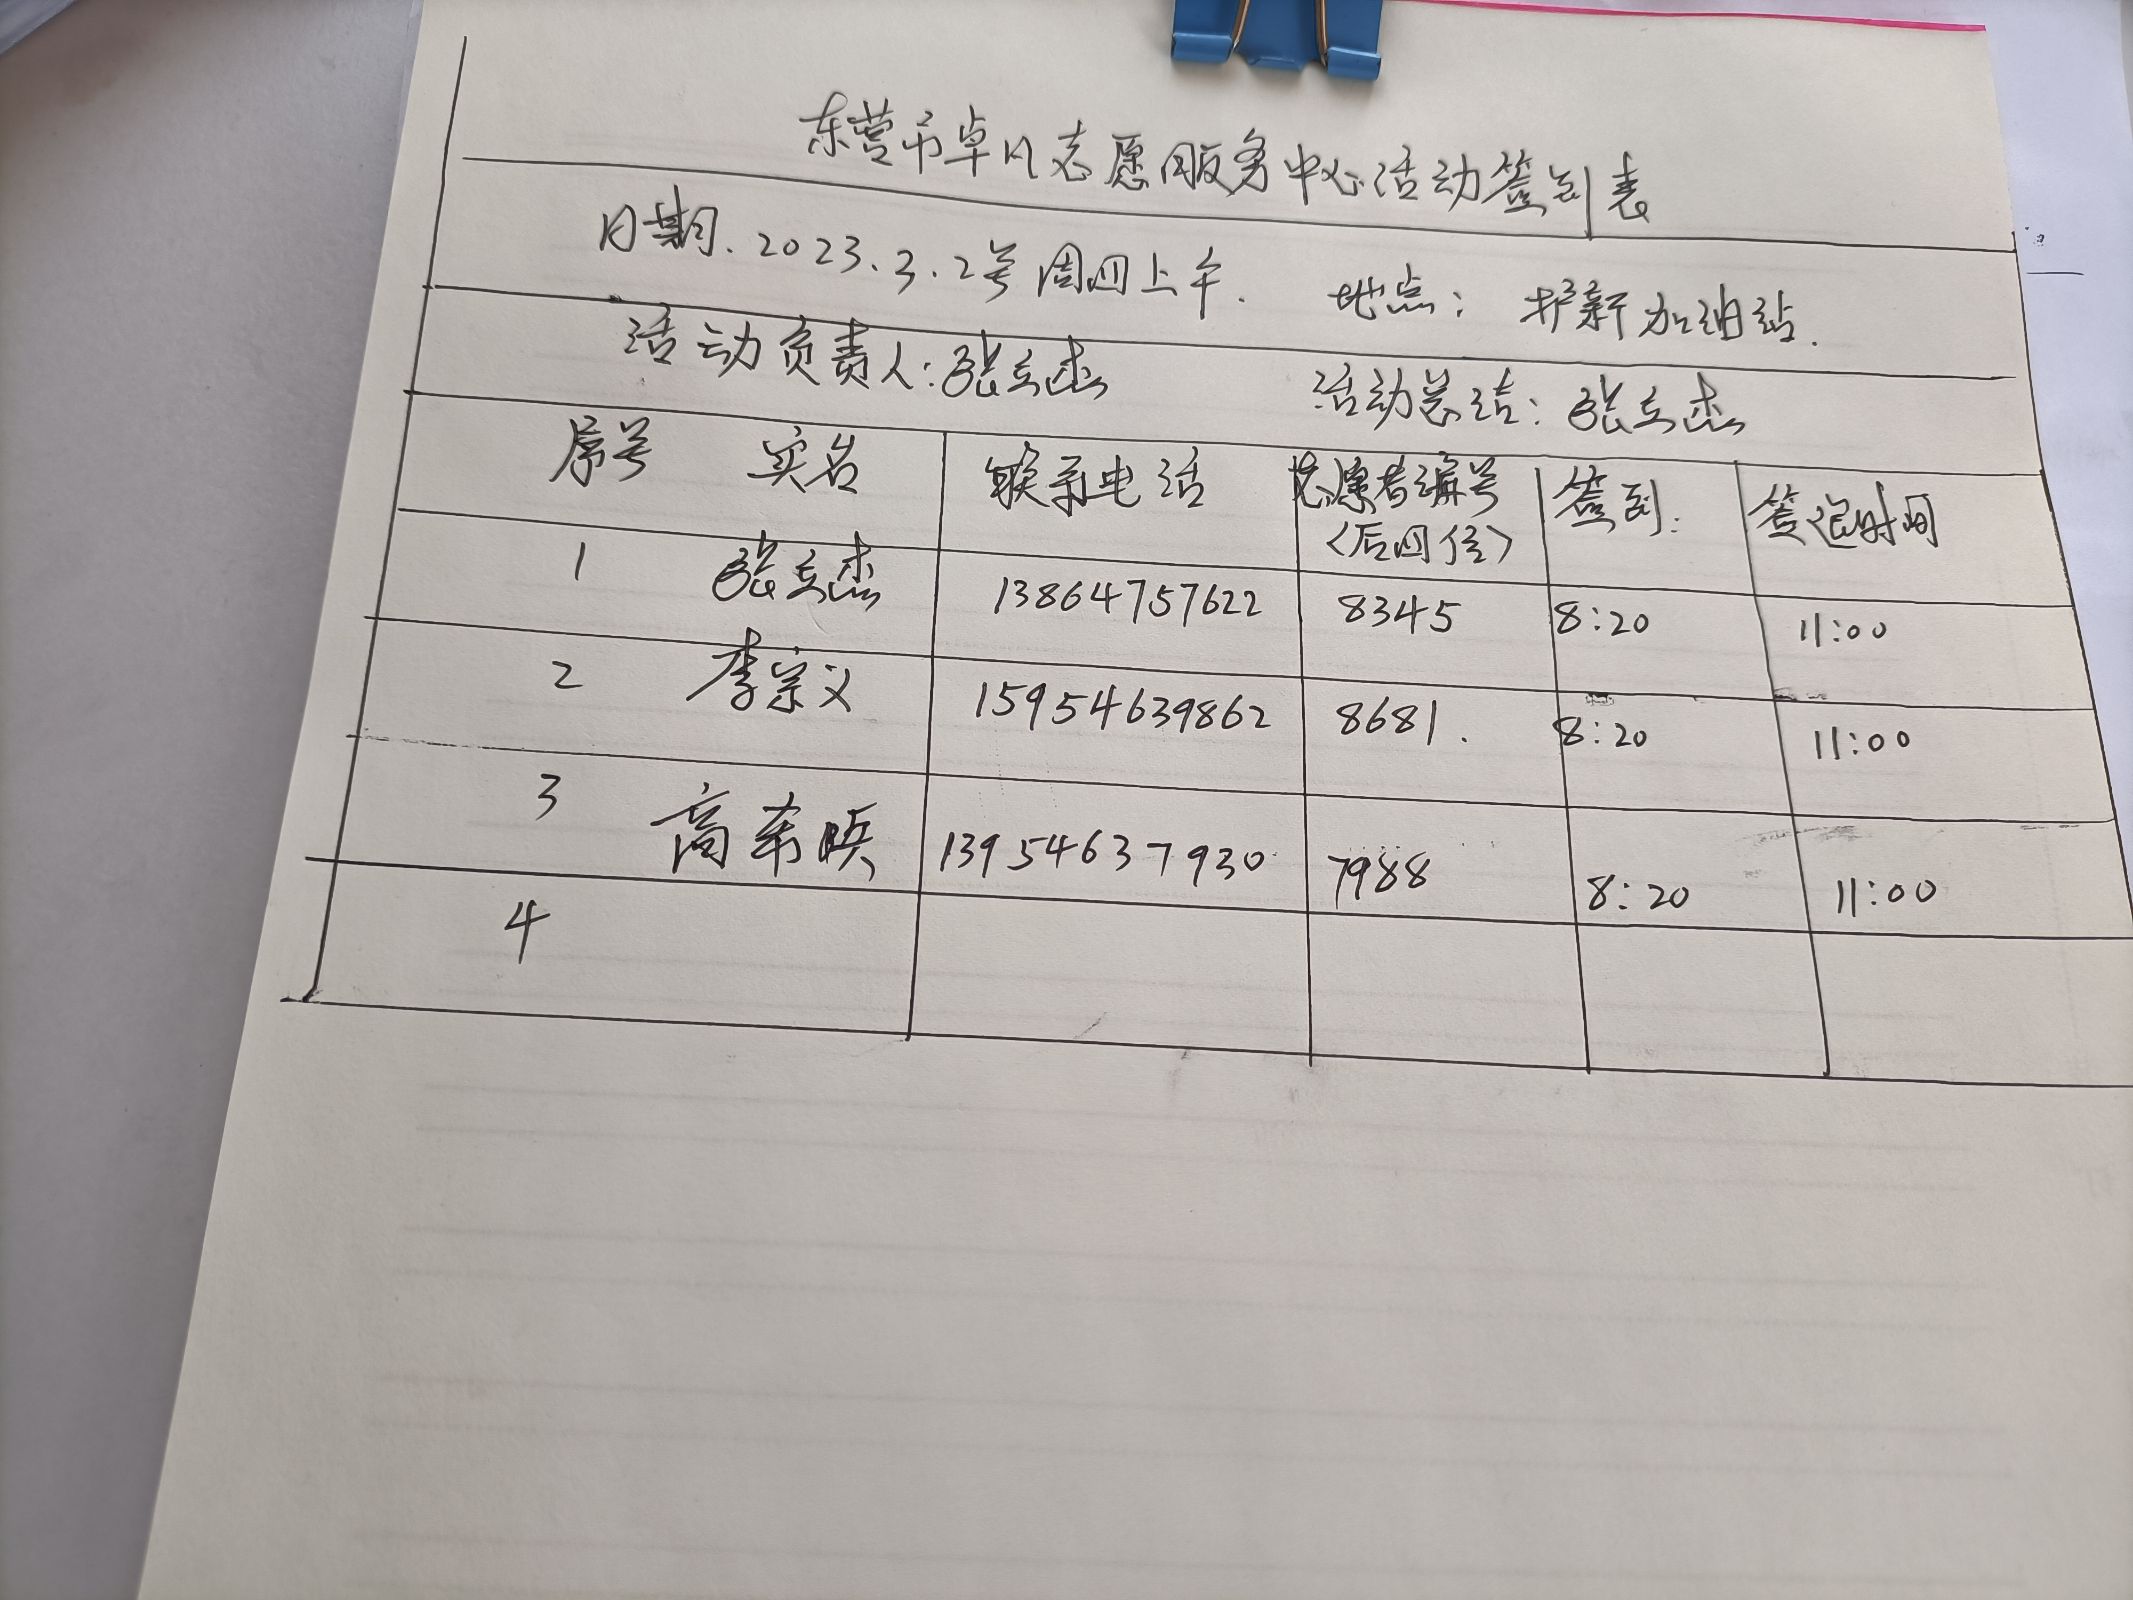 东营市卓凡志愿服务中心活动签到表
日期.2023.3.2号周四上午. 地点: 护新加油站.
活动负责人:张立杰 活动总结:张立杰
序号 实名 联系电话 志愿者编号 签到: 签退时间
〈后四位〉
1 张立杰 13864757622 8345 8:20 11:00
2 李宗义 15954639862 8681. 8:20 11:00
3 高 13954637930 7988 8:20 11:00
4